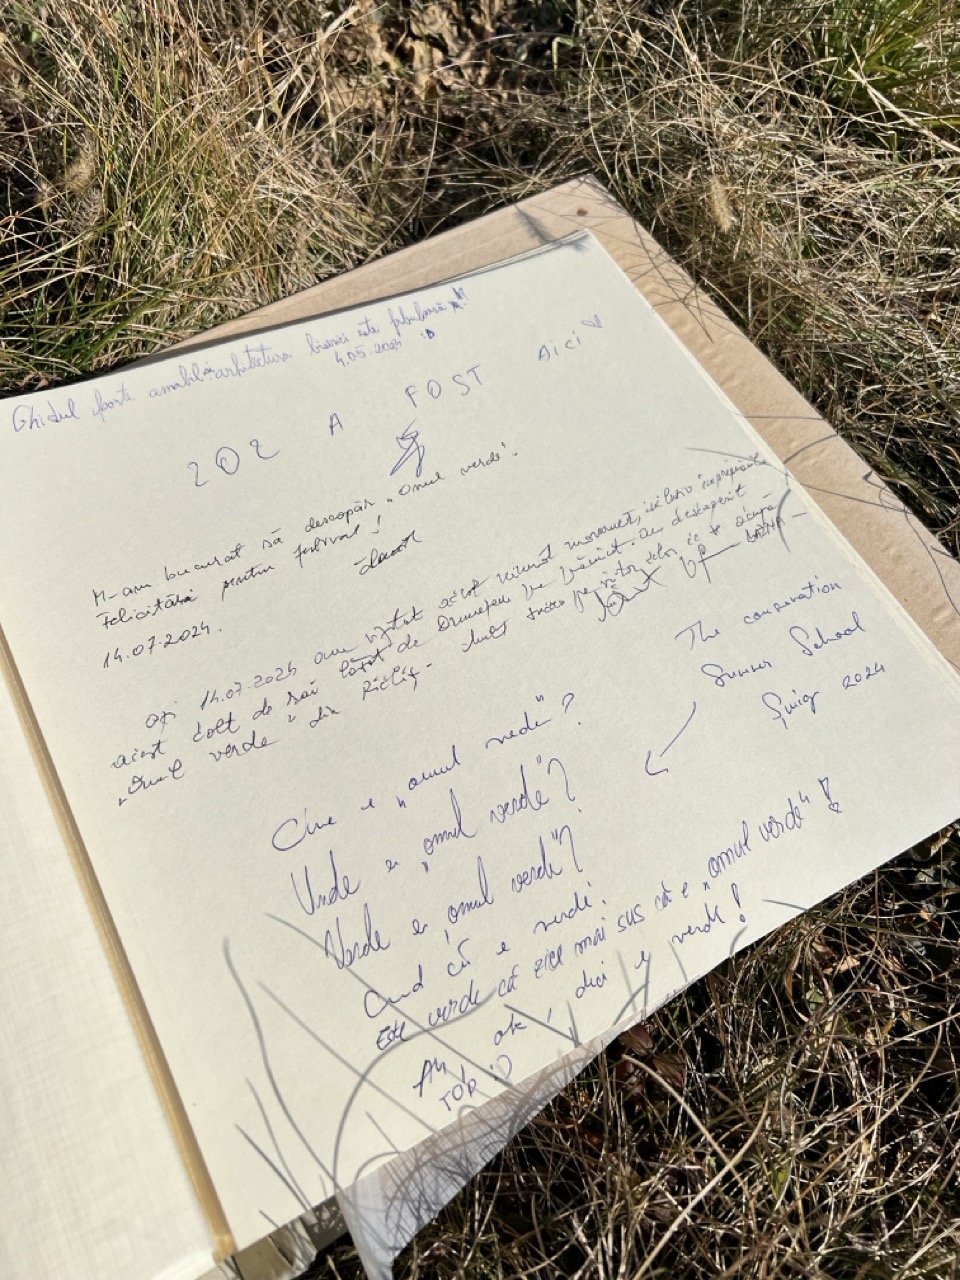 Ghidul foarte amabil și arhitectura bisericii este fabuloasă!!
4.05.2024 :D
202 A FOST AICI
M-am bucurat să descopăr „Omul verde".
Felicitări pentru festival!
14.07.2024.
azi 14.07.2024 am vizitat acest minunat monument,
acest colț de rai lăsat de Dumnezeu pe Pământ. Am descoperit
„Omul verde" din
The conservation
Summer School
2024
Cine e „omul verde"?
Unde e „omul verde"?
Verde e „omul verde"?
Cred că e verde.
Este verde că zice mai sus că e „omul verde"!
Ah, ok, deci e verde!
TOP :D